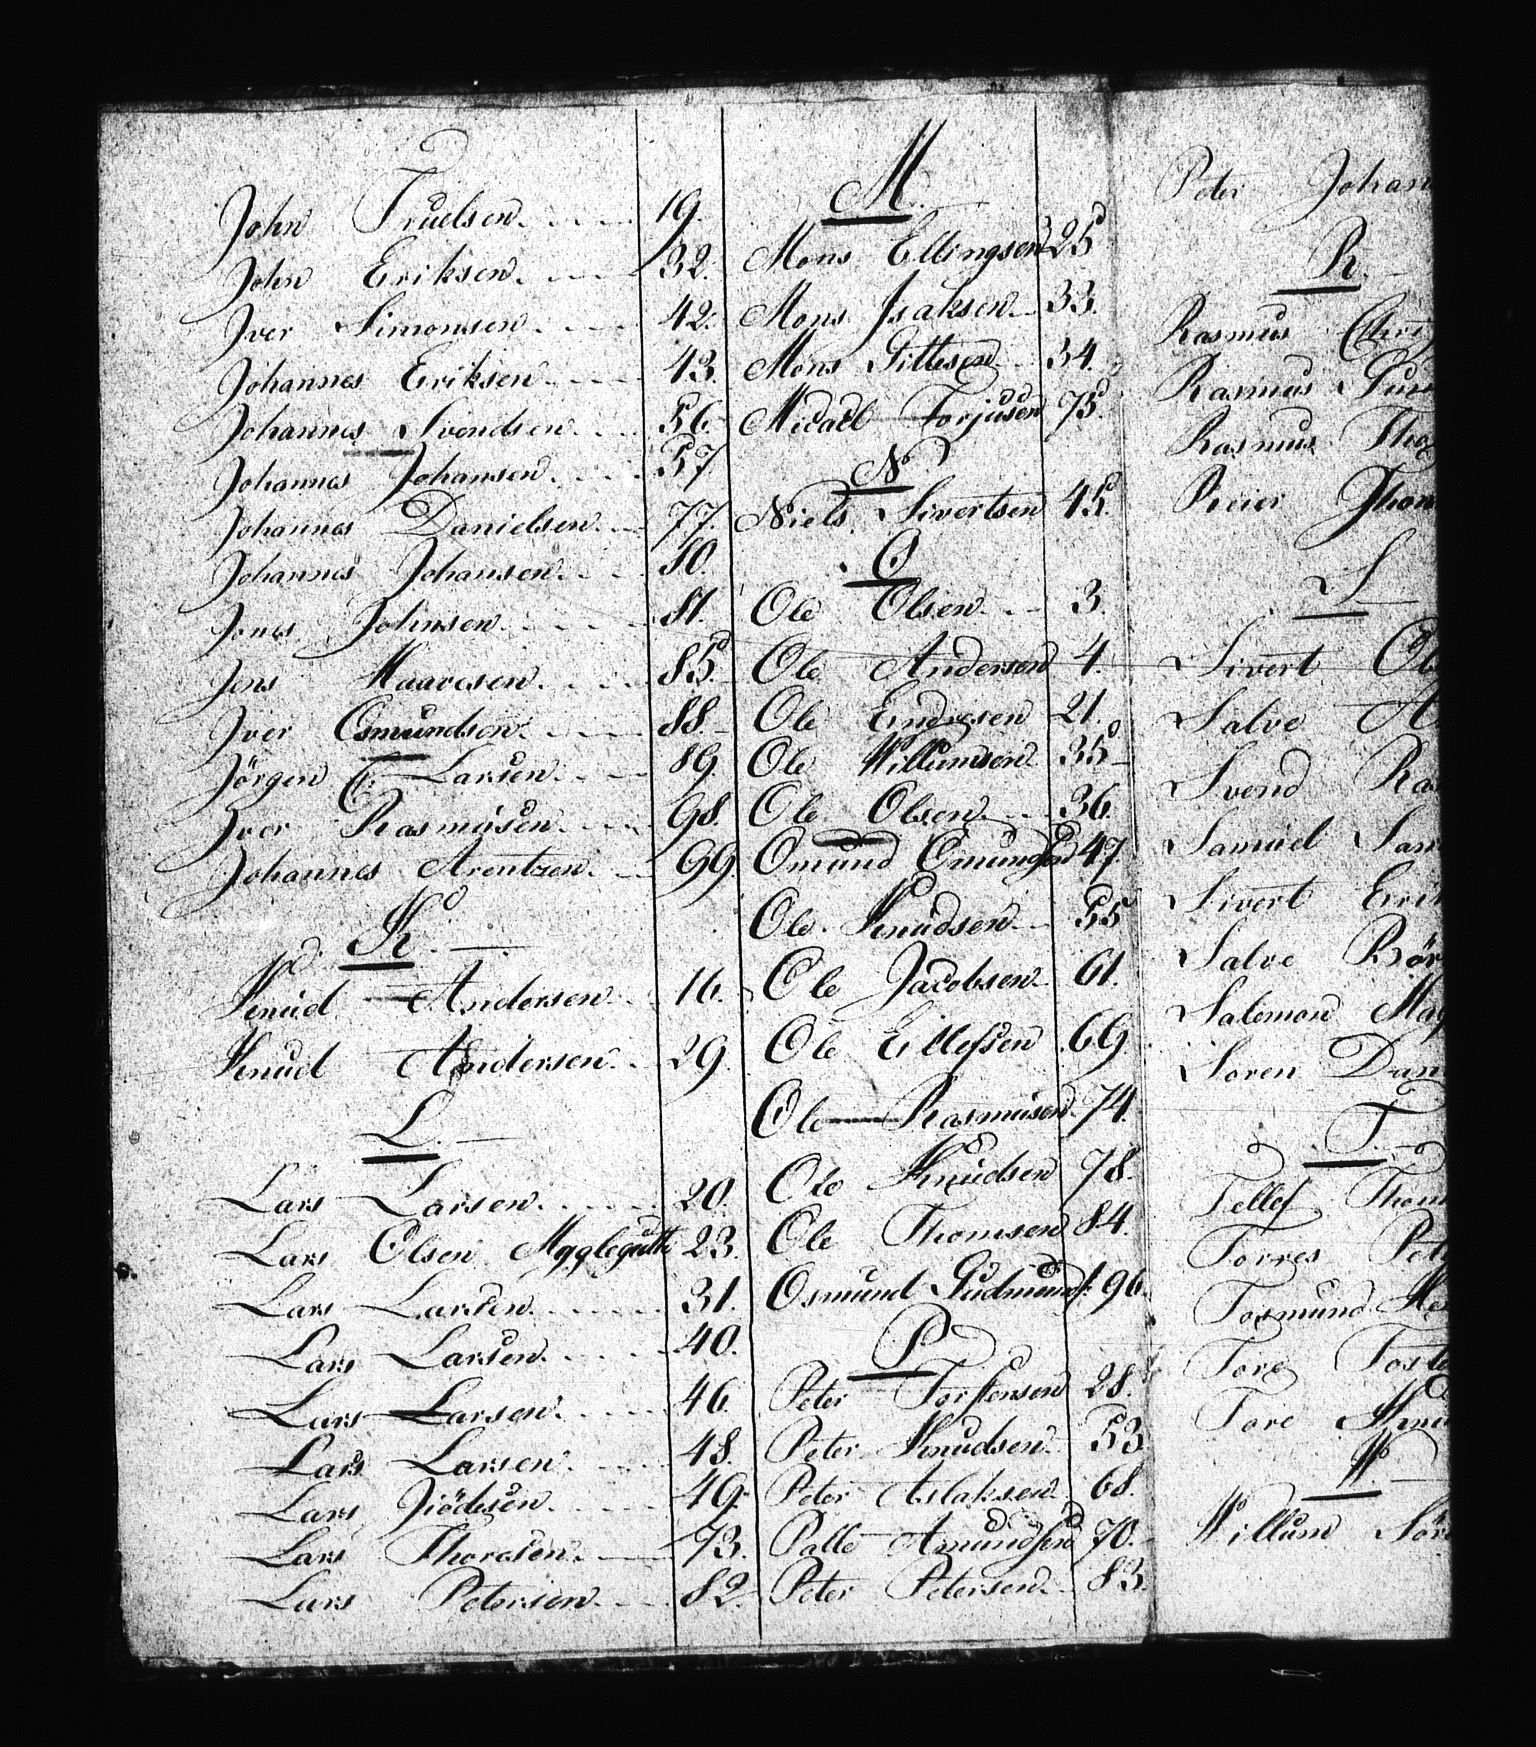 John Truelsen 19.
John Eriksen 32.
Iver Simonsen 42.
Johannes Eriksen 43.
Johannes Svendsen 56
Johannes Johansen 57
Johannes Danielsen 77.
Johannes Johansen 80.
Jones Johnsen 81.
Jens Haavesen 85.
Iver Osmundsen 88.
Jörgen C. Larsen 89.
Iver Rasmusen 98.
Johannes Arentzen 99
K.
Knud Andersen 16.
Knud Andersen 29.
L.
Lars Larsen 20.
Lars Olsen 23.
Lars Larsen 31.
Lars Larsen 40.
Lars Larsen 46.
Lars Larsen 48.
Lars Giödesen 49.
Lars Thoresen 73.
Lars Petersen 82.
M.
Mons Ellingsen 25
Mons Isaksen 33.
Mons Gittlesen 34.
Micael Torjusen 75.
N
Niels Sivertsen 45.
O
Ole Olsen 3.
Ole Andersen 4.
Ole Endresen 21.
Ole Willumsen 35
Ole Olsen 36.
Omund Omundsen 47.
Ole Knudsen 55
Ole Jacobsen 61.
Ole Ellefsen 69.
Ole Rasmusen 74.
Ole Knudsen 78.
Ole Thomsen 84.
Osmund Gudmunds: 96.
P
Peter Torstensen 28.
Peter Knudsen 53.
Peter Aslaksen 68.
Palle Amundsen 70.
Peter Petersen 83.
Peter Johan
R.
Rasmus Chri
Rasmus Gun
Rasmus Tho
Reier Thom
S
Sivert Ol
Salve A
Svend Ras
Samuel Sam
Sivert Erik
Salve Bör
Salomon Mag
Soren Dan
T.
Tellef Thom
Torres Pet
Tosmund
Tore Toste
Tore Knu
W
Willum Sör